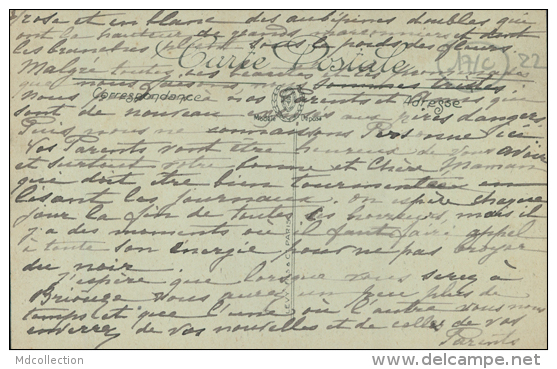 rose et en blanc des aubépines doubles qui
ont la hauteur de grands marronniers et dont
les branches plient sous le poids des fleurs.
Carte Postale
(17/C) 22
Malgré toutes ces beautés et ces promenades
que nous faisons nous sommes tristes;
Correspondance
Adresse
nous à nos Parents et amis qui
sont de nouveau aux pires dangers
Modèle Déposé
Puis nous ne connaissons Personne ici
Vos Parents vont être heureux de vous avoir
et surtout votre bonne et chère Maman
qui doit être bien tourmentée en
lisant les journaux. on espère chaque
jour la fin de toutes ces horreurs, mais il
y a des moments où il faut faire appel
à toute son énergie pour ne pas broyer
du noir.
J'espère que lorsque vous serez à
Briouze vous aurez un peu plus de
temps et que l'une où l'autre vous nous
enverrez de vos nouvelles et de celles de vos
Parents
Mdcollection
www.delcampe.net